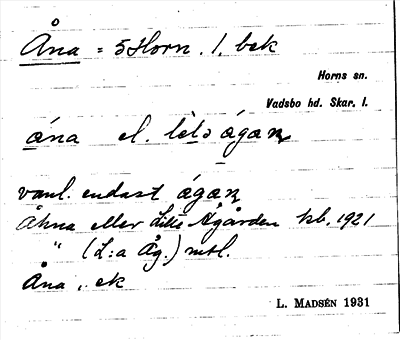 Åna = 5 Horn. 1. bek
Horns sn.
Vadsbo hd. Skar. l.
ána el. lìtə ágaɳ
vanl. endast ágaɳ
Åhna eller Lille Ågården kb. 1921
" (L:a Åg.) mtl.
Åna, ek
L. MADSÉN 1931